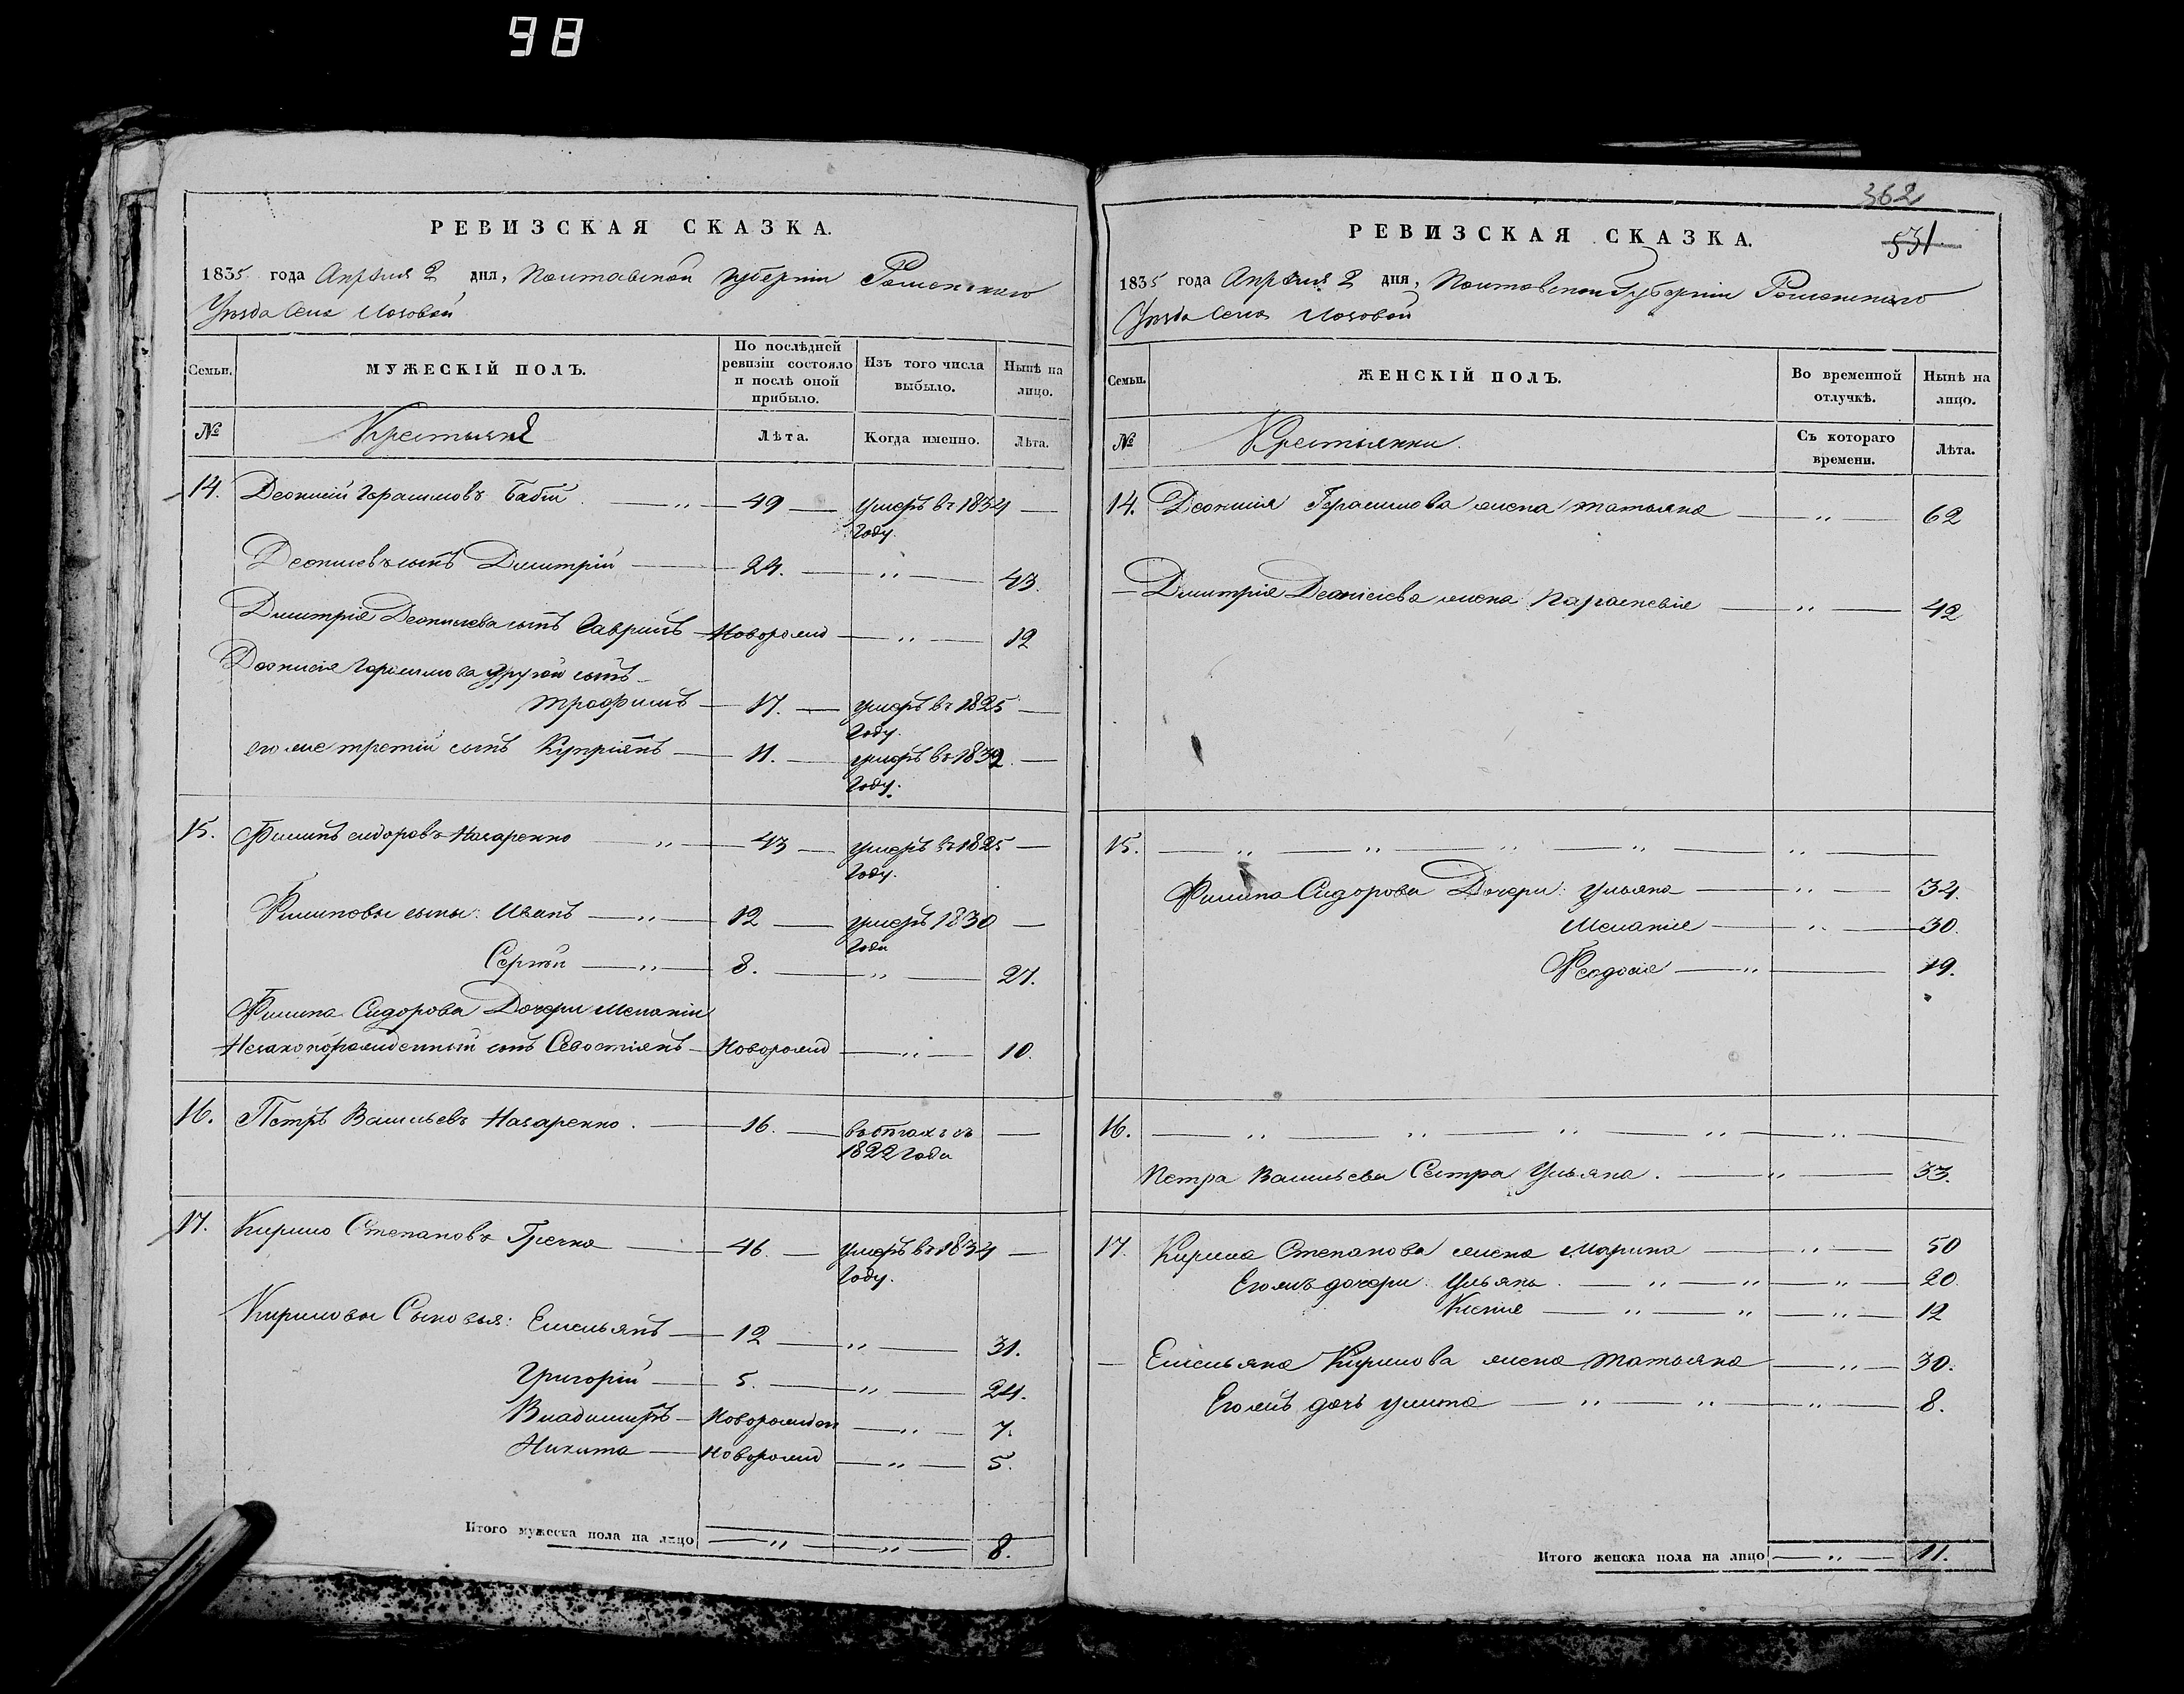 98
РЕВИЗСКАЯ СКАЗКА.
1835 года Апрѣля 2 дня, Полтавской губерніи Роменского
Уѣзда Села Лозовой
Семьи. МУЖЕСКІЙ ПОЛЪ. По послѣдней ревизіи состояло и послѣ оной прибыло. Изъ того числа выбыло. Нынѣ на лицо.
№ Крестьяне Лѣта. Когда именно. Лѣта.
14. Деонисій Герасимовъ Бабій — „ — 49 — умеръ въ 1834 —
Году.
Деонисіевъ сынъ Димитрій — 24. — „ — 43.
Димитрія Деонисіева сынъ Гавріилъ — Новорожд — „ — 12
Деонисія Герасимова другой сынъ
Трофимъ — 17. — умеръ въ 1825 —
Году.
его же третій сынъ Кипріянъ — 11. — умеръ въ 1832 —
Году.
15. Филипъ Сидоровъ Назаренко — „ — 43 — умеръ въ 1825 —
Году.
Филиповы сыны: Иванъ — „ — 12 — умеръ 1830 —
Года
Сергѣй — „ — 8. — „ — 27.
Филипа Сидорова Дочери Меланіи
Незаконорожденный сынъ Севостіянъ — Новорожд — „ — 10.
16. Петръ Васильевъ Назаренко. — 16. — въ бѣгахъ съ —
1822 Года
17. Кирило Степановъ Гречка — 46. — умеръ въ 1834 —
Году.
Кириловы Сыновья: Емельянъ — 12 — „ — 31.
Григорій — 5. — „ — 24.
Владимиръ — Новорожден — „ — 7.
Никита — Новорожд — „ — 5.
Итого мужеска пола на лицо — „ — „ — 8.
362
РЕВИЗСКАЯ СКАЗКА. 531
1835 года Апрѣля 2 дня, Полтавской Губерніи Роменского
Уѣзда Села Лозовой
Семьи. ЖЕНСКІЙ ПОЛЪ. Во временной отлучкѣ. Нынѣ на лицо.
№ Крестьянки. Съ котораго времени. Лѣта.
14. Деонисія Герасимова жена Татьяна — „ — 62
Димитрія Деонісіева жена Параскевія — „ — 42
15. — „ — „ — „ — „ — „ —
Филипа Сидорова Дочери: Ульяна — „ — 34.
Меланія — „ — 30.
Феодосія — „ — 19.
16. — „ — „ — „ — „ — „ —
Петра Васильева Сестра Ульяна. — „ — 33.
17. Кирила Степанова жена Марина — „ — 50
Его жъ дочери: Ульяна. — „ — „ — „ — 20.
Ксенія — „ — „ — „ — 12
Емельяна Кирилова жена Татьяна — „ — 30.
Его жъ дочь Улита — „ — „ — „ — 8.
Итого женска пола на лицо — „ — 11.